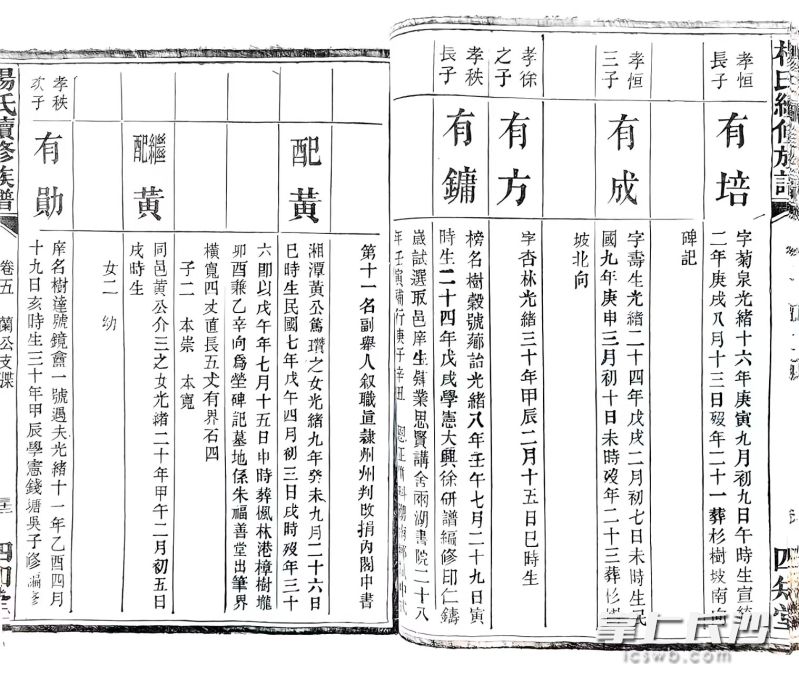 楊氏續修族譜
四知堂
孝恒
長子
有培
字菊泉光緒十六年庚寅九月初九日午時生宣統
二年庚戌八月十三日歿年二十一葬杉樹坡南向
碑記
孝恒
三子
有成
字壽生光緒二十四年戊戌二月初七日未時生民
國九年庚申三月初十日未時歿年二十三葬杉
坡北向
孝徐
之子
有方
字杏林光緒三十年甲辰二月十五日巳時生
孝秩
長子
有鏞
榜名樹穀號薌詒光緒八年壬午七月二十九日寅
時生二十四年戊戌學憲大興徐研譜編修印仁鑄
歲試選取邑庠生肄業思賢講舍兩湖書院二十八
年壬寅補行庚子辛丑
第十一名副舉人敘職直隸州州判改捐內閣中書
配黃
湘潭黃公篤瓚之女光緒九年癸未九月二十六日
巳時生民國七年戊午四月初三日戌時歿年三十
六即以戊午年七月十五日申時葬楓林港樟樹壠
卯酉兼乙辛向爲塋碑記墓地係朱福善堂出筆界
橫寬四丈直長五丈有界石四
子二 本崇 本寬
繼配黃
同邑黃公介三之女光緒二十年甲午二月初五日
戌時生
女二 幼
孝秩
次子
有勛
庠名樹達號鏡盦一號遇夫光緒十一年乙酉四月
十九日亥時生三十年甲辰學憲錢塘吳子修編修
楊氏續修族譜
卷五 蘭公支牒
掌上長沙
icswb.com